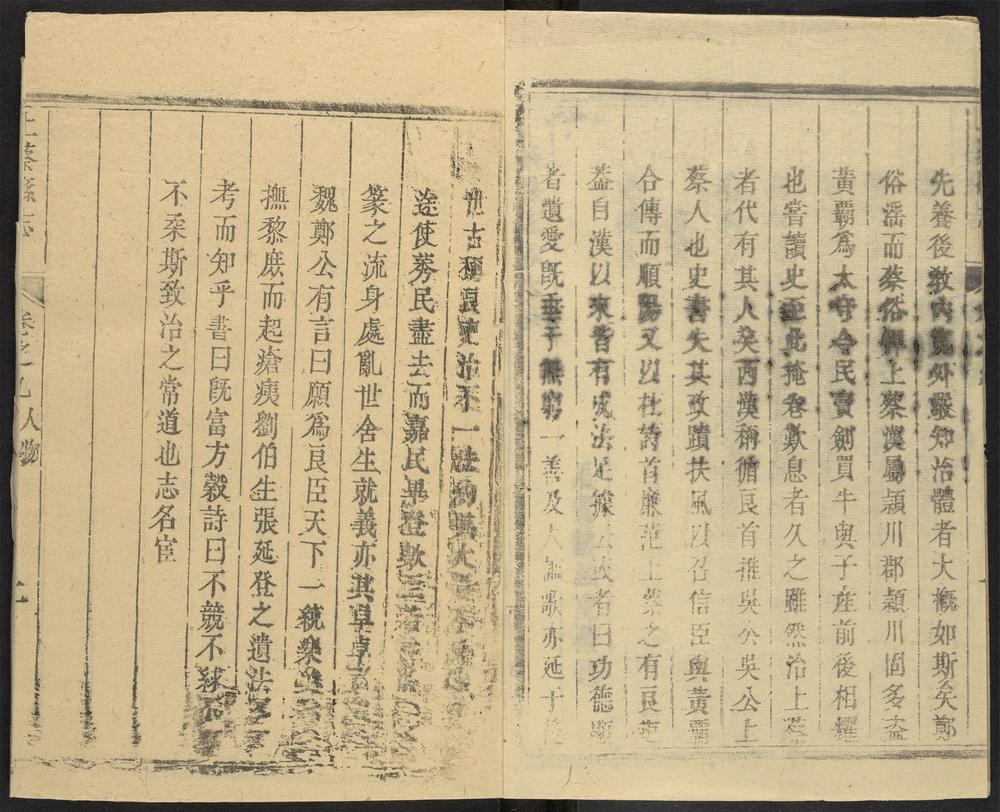 先養後教內寬外嚴知治體者大概如斯矣鄭
俗淫而蔡俗僤上蔡漢屬潁川郡潁川固多盜
黃霸為太守令民賣劍買牛與子產前後相耀
也嘗讀史至此掩卷歎息者久之雖然治上蔡
者代有其人矣西漢稱循良首推吳公吳公上
蔡人也史書失其政蹟扶風以召信臣與黃霸
合傳而順陽又以杜詩首廉范上蔡之有良
蓋自漢以來皆有成法足據 或者曰功德
者遺愛既垂于無窮一善及人謳歌亦延于
世古 吏治不一
途使莠民盡去而嘉民畢登歟
篆之流身處亂世舍生就義亦其卓卓
魏鄭公有言曰願為良臣天下一統樂
撫黎庶而起瘡痍劉伯生張延登之遺法
考而知乎書曰既富方穀詩曰不競不絿不
不柔斯致治之常道也志名宦
上蔡縣志
卷之九 人物